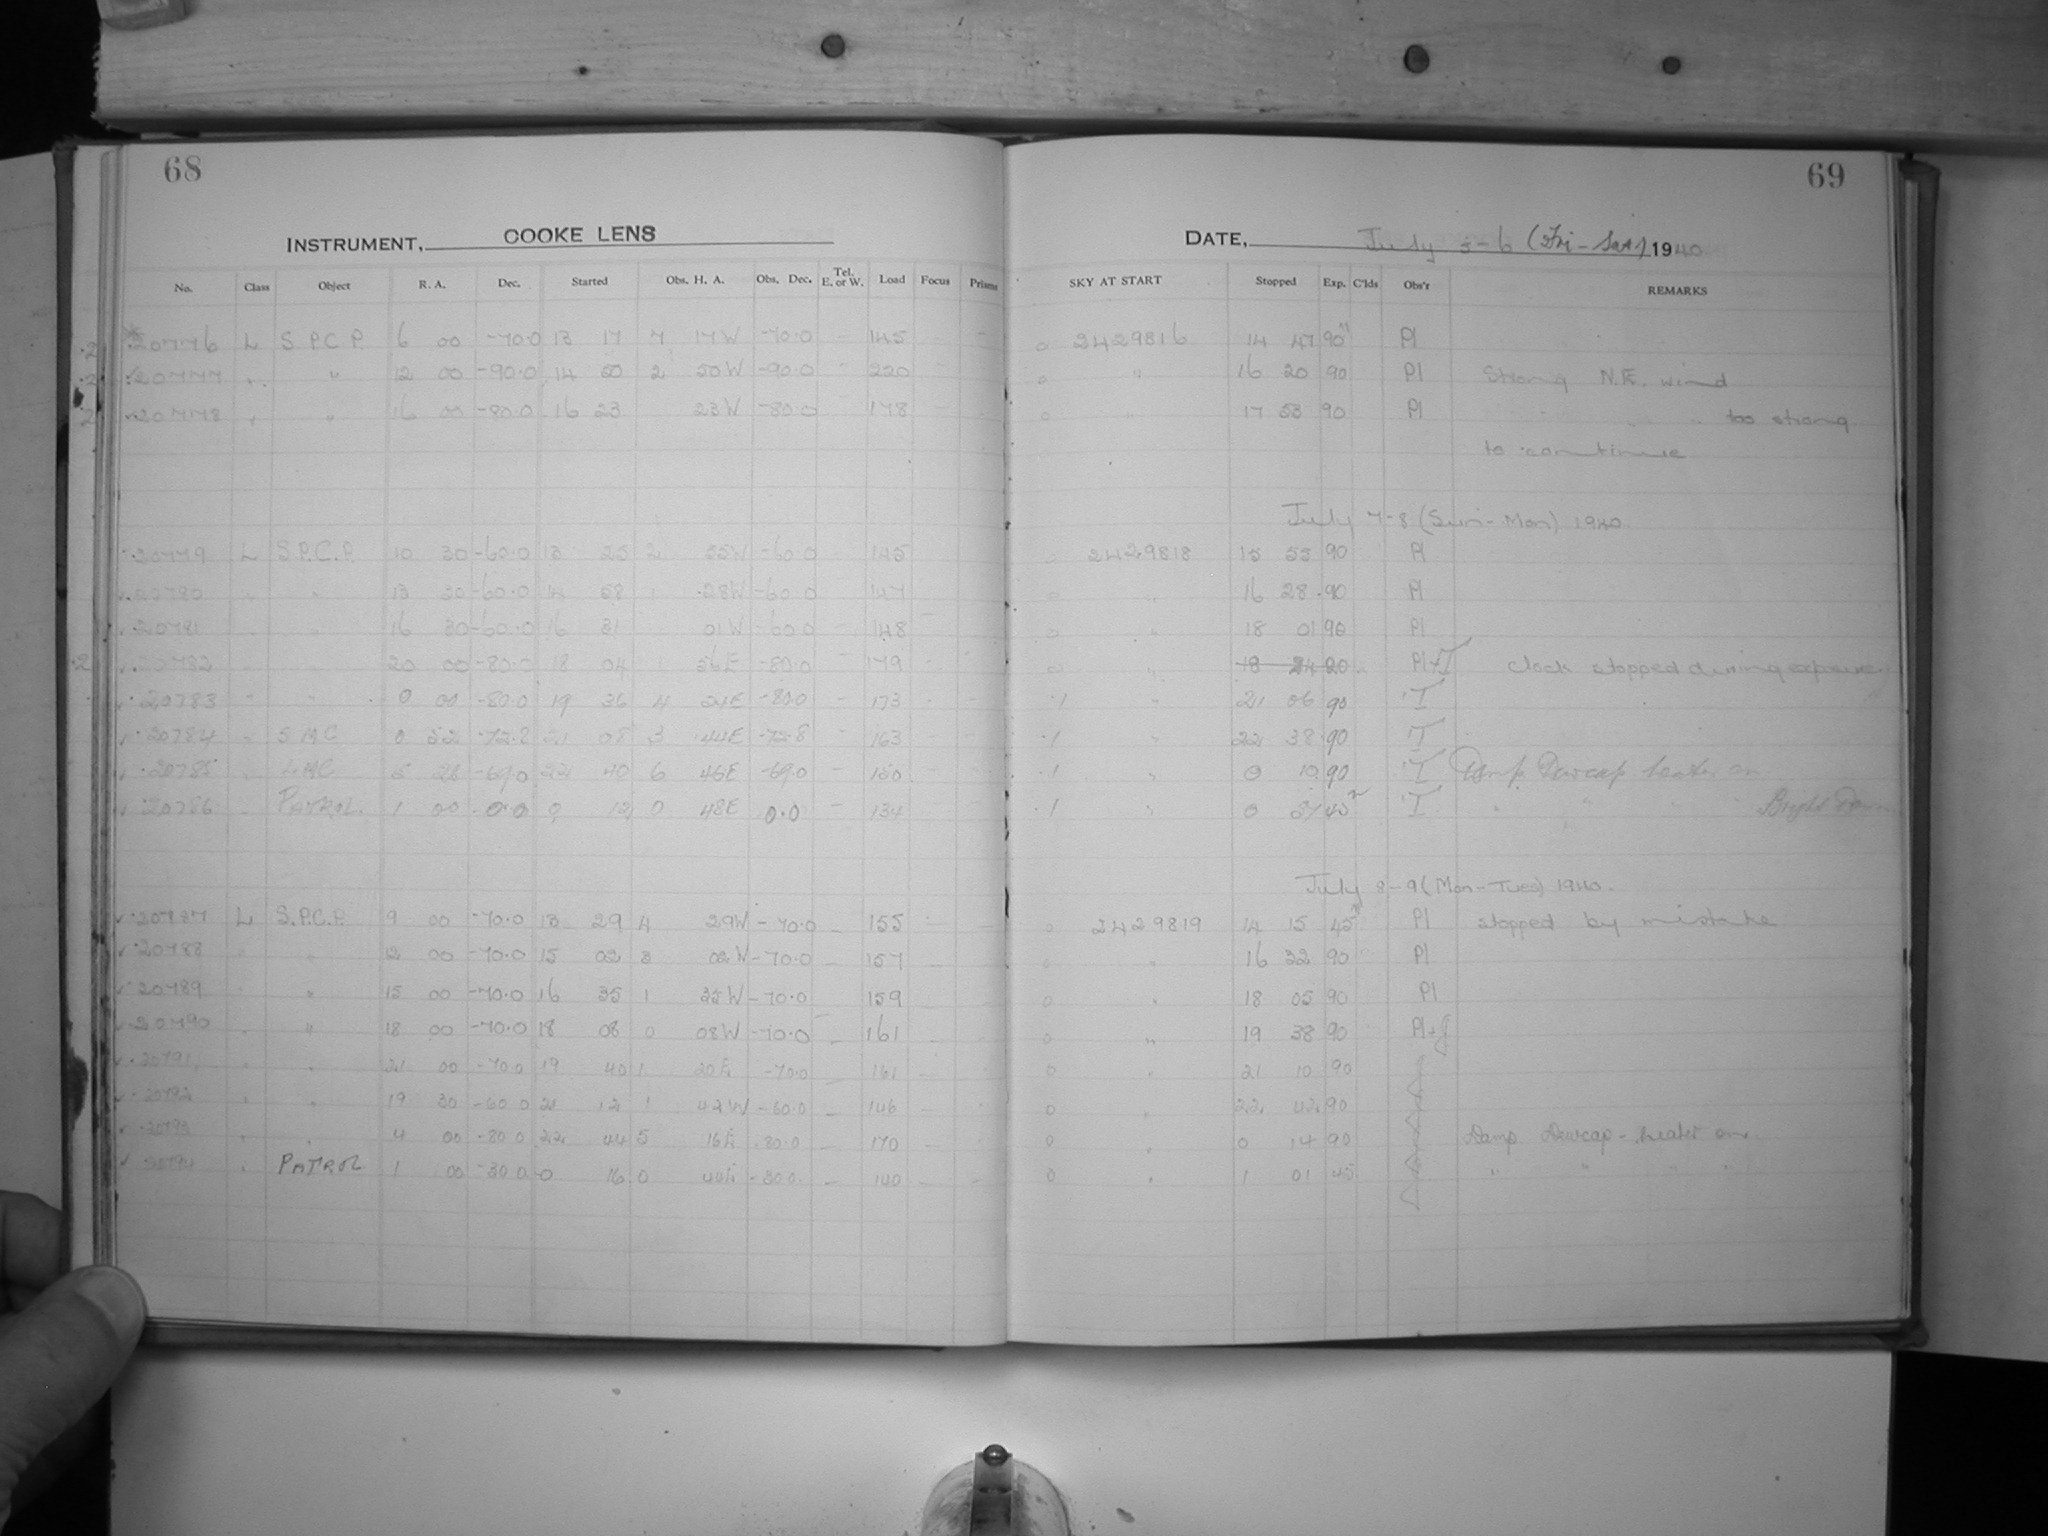 68
69
INSTRUMENT, COOKE LENS
DATE, July 5-6 (Fri-Sat) 1940
No. Class Object R. A. Dec. Started Obs. H. A. Obs. Dec. Tel. E. or W. Load Focus Prisms SKY AT START Stopped Exp. C'lds Obs'r REMARKS
20776 L S.P.C.P. 6 00 -70.0 13 17 7 17W -70.0 - 145 0 2429816 14 47 90 Pl
20777 " " 12 00 -90.0 14 50 2 50W -90.0 - 220 0 " 16 20 90 Pl Strong N.E. wind
20778 " " 16 00 -80.0 16 23 23W -80.0 178 0 " 17 53 90 Pl " " " too strong
to continue
July 7-8 (Sun-Mon) 1940.
20779 L S.P.C.P. 10 30 -60.0 13 25 2 55W -60.0 145 0 2429818 15 55 90 Pl
20780 " " 13 30 -60.0 14 58 1 28W -60.0 147 0 " 16 28 90 Pl
20781 " " 16 30 -60.0 16 31 01W -60.0 148 0 " 18 01 90 Pl
20782 " " 20 00 -80.0 18 04 1 56E -80.0 179 0 " 18 24 20 Pl+T clock stopped during exposure
20783 " " 0 00 -80.0 19 36 4 24E -80.0 - 173 -1 " 21 06 90 T
20784 " SMC 0 52 -72.8 21 08 3 44E -72.8 - 163 -1 " 22 38 90 T
20785 " LMC 5 28 -69.0 22 40 6 46E -69.0 - 150 -1 " 0 10 90 T Damp Dewcap heater on
20786 " PATROL 1 00 0.0 0 12 0 48E 0.0 - 134 -1 " 0 40 T " " " " Bright Dawn
July 8-9 (Mon-Tues) 1940.
20787 L S.P.C.P. 9 00 -70.0 13 29 4 29W -70.0 - 155 0 2429819 14 15 45 Pl stopped by mistake
20788 " " 12 00 -70.0 15 02 3 02W -70.0 - 157 " 16 32 90 Pl
20789 " " 15 00 -70.0 16 35 1 35W -70.0 - 159 0 " 18 05 90 Pl
20790 " " 18 00 -70.0 18 08 0 08W -70.0 - 161 0 " 19 38 90 Pl+J
20791 " " 21 00 -70.0 19 40 1 20E -70.0 - 161 0 " 21 10 90
20792 " " 19 30 -60.0 21 12 1 42W -60.0 - 146 0 " 22 42 90
20793 " " 4 00 -80.0 22 44 5 16E -80.0 - 170 0 " 0 14 90 Damp Dewcap-heater on.
20794 " PATROL 1 00 -30.0 0 16 0 44E -30.0 - 140 0 " 1 01 45 " " " "